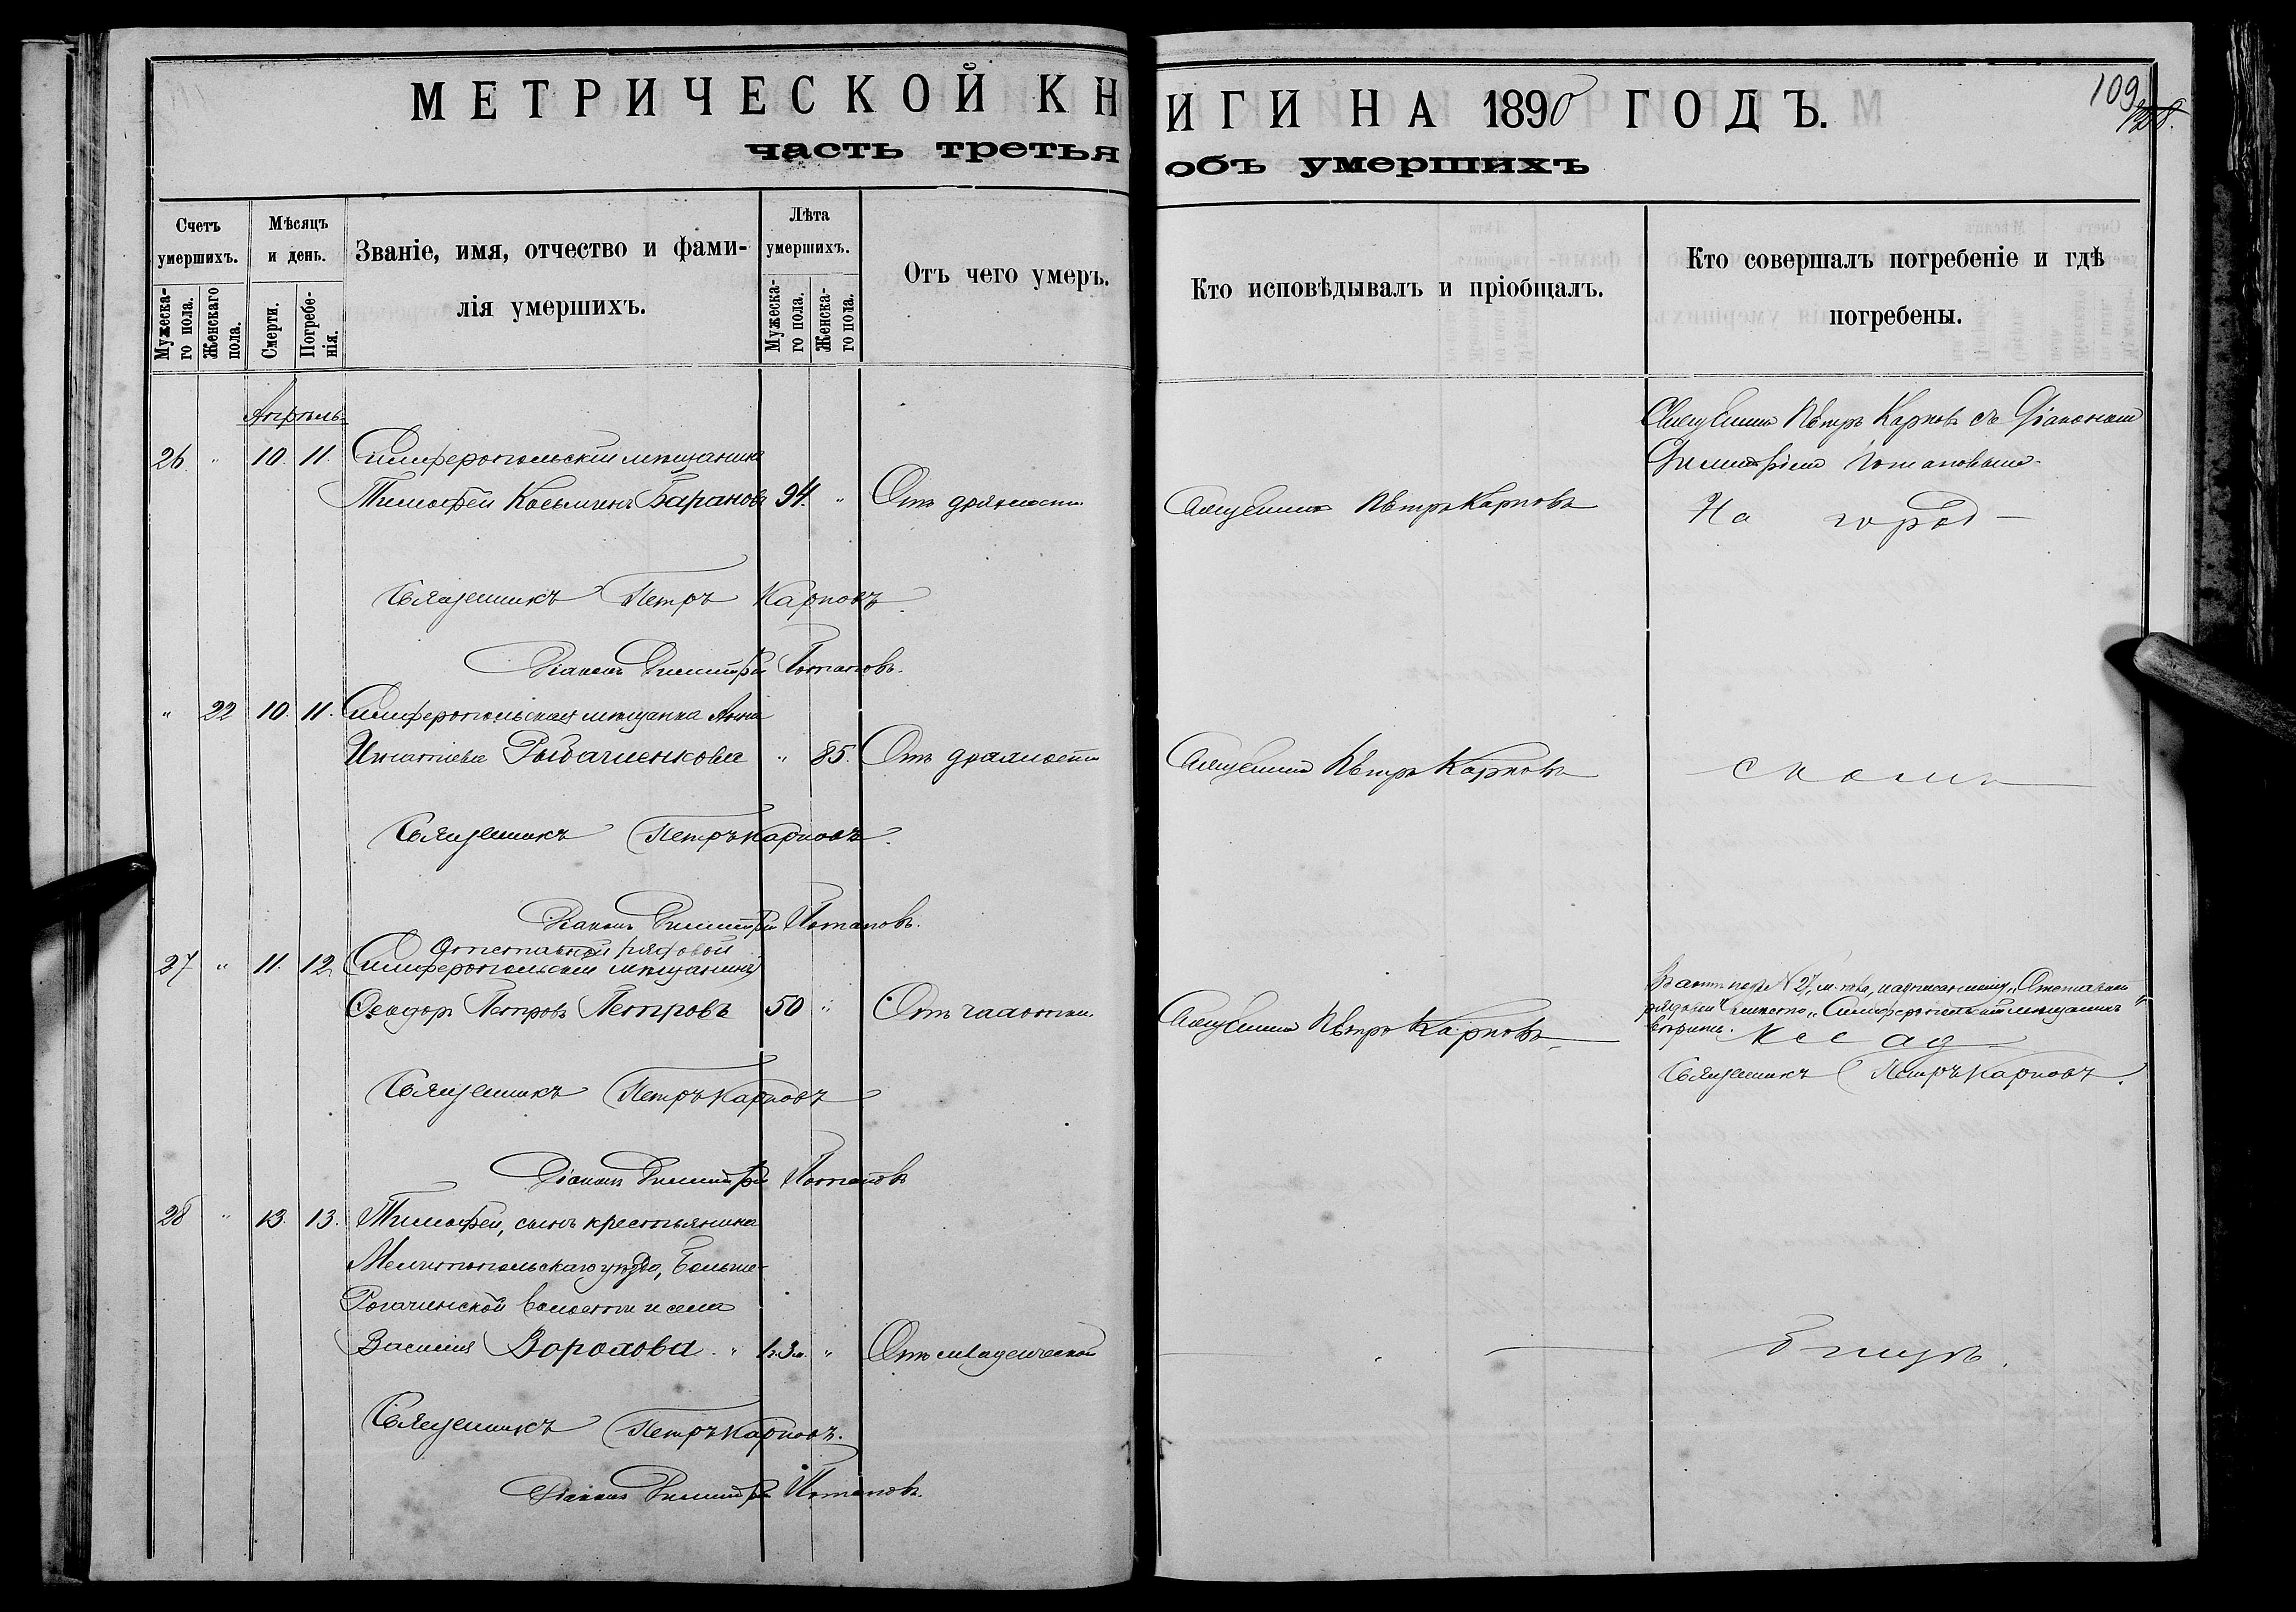 МЕТРИЧЕСКОЙ КНИГИ НА 1890 ГОДЪ.
109
часть третья объ умершихъ
Счетъ умершихъ.
Мужеска-го пола.
Женскаго пола.
Мѣсяцъ и день.
Смерти.
Погребе-нія.
Званіе, имя, отчество и фами-
лія умершихъ.
Лѣта умершихъ.
Мужеска-го пола.
Женска-го пола.
Отъ чего умеръ.
Кто исповѣдывалъ и пріобщалъ.
Кто совершалъ погребеніе и гдѣ
погребены.
Апрѣль
Священникъ Петръ Карповъ съ Діакономъ
26 " 10. 11. Симферопольскій мѣщанинъ
Димитріемъ Потаповымъ
Тимофей Косьминъ Барановъ 94. " Отъ дряхлости Священникъ Петръ Карповъ На город
Священникъ Петръ Карповъ.
Діаконъ Димитрій Потаповъ.
" 22 10. 11. Симферопольская мѣщанка Анна
Игнатіева Рыбаченкова " 85. Отъ дряхлости Священникъ Петръ Карповъ скомъ
Священникъ Петръ Карповъ.
Діаконъ Димитрій Потаповъ.
Отставной рядовой
27 " 11. 12. (Симферопольскій мѣщанинъ)
Ѳеодоръ Петровъ Петровъ 50 " Отъ чахотки. Священникъ Петръ Карповъ
В актѣ подъ № 27, м. пола, надписанному "Отставной
рядовой" вмѣсто "Симферопольскій мѣщанинъ"
вѣрить.
клад
Священникъ Петръ Карповъ.
Священникъ Петръ Карповъ
Діаконъ Димитрій Потаповъ
28 " 13. 13. Тимофей, сынъ крестьянина
Мелитопольскаго уѣзда, Больше-
Рогачинской волости и села
Василія Ворохова. " " Отъ младенческой бищѣ.
Священникъ Петръ Карповъ.
Діаконъ Димитрій Потаповъ.